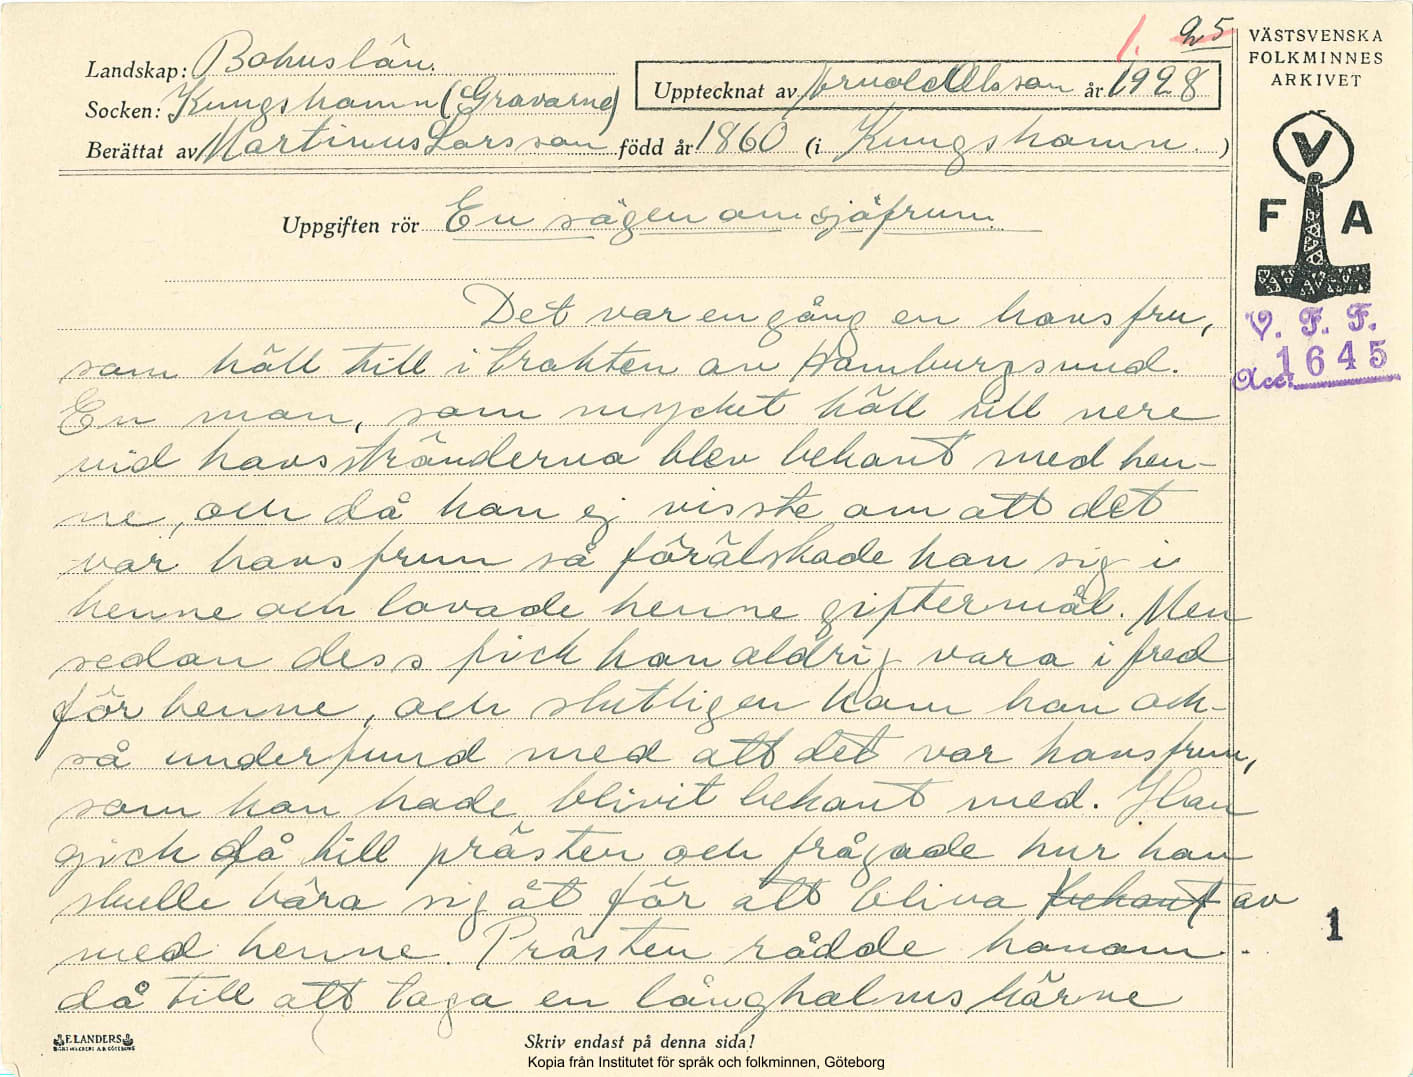 1. 25
VÄSTSVENSKA
FOLKMINNES
ARKIVET
Landskap: Bohuslän.
Socken: Kungshamn (Gravarne)
Upptecknat av Arnold Olsson år 1928
Berättat av Martinus Larsson född år 1860 (i Kungshamn.)
V
F A
Uppgiften rör En sägen om sjöfrun.
V. F. F.
Acc. 1645
Det var en gång en havsfru,
som höll till i trakten av Hamburgsund.
En man, som mycket höll till nere
vid havsstränderna blev bekant med hen-
ne, och då han ej visste om att det
var havsfrun så förälskade han sig i
henne och lovade henne giftermål. Men
sedan dess fick han aldrig vara i fred
för henne, och slutligen kom han ock-
så underfund med att det var havsfrun,
som han hade blivit bekant med. Han
gick då till prästen och frågade hur han
skulle bära sig åt för att bliva bekant av
med henne. Prästen rådde honom
då till att taga en långhalmskärve
1
F. ELANDERS
BOKTRYCKERI A.B. GÖTEBORG
Skriv endast på denna sida!
Kopia från Institutet för språk och folkminnen, Göteborg